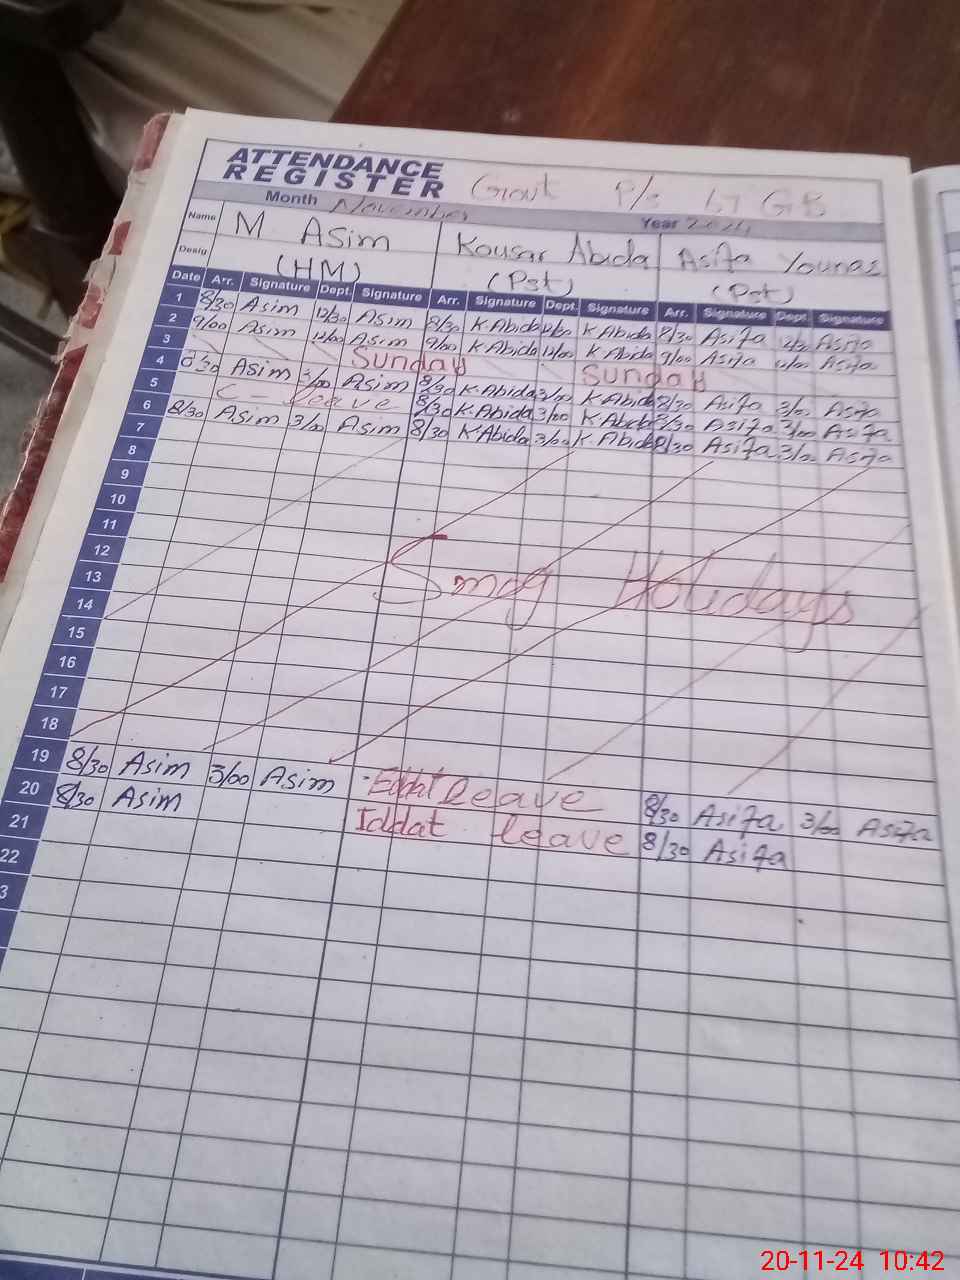 ATTENDANCE
REGISTER
Govt P/s 67 GB
Month November Year 2024
Name M Asim Kousar Abida Asifa Younas
Desig (HM) (Pst) (Pst)
Date Arr. Signature Dept. Signature Arr. Signature Dept. Signature Arr. Signature Dept. Signature
1 8/30 Asim 12/30 Asim 8/30 K.Abida K.Abida 8/30 Asifa Asifa
2 9/00 Asim Asim 9/00 K.Abida K.Abida 9/00 Asifa Asifa
3 Sunday Sunday
4 8/30 Asim 3/00 Asim 8/30 K.Abida 3/00 K.Abida 8/30 Asifa 3/00 Asifa
5 C - leave 8/30 K.Abida 3/00 K.Abida 8/30 Asifa 3/00 Asifa
6 8/30 Asim 3/00 Asim 8/30 K.Abida 3/00 K.Abida 8/30 Asifa 3/00 Asifa
7
8
9
10
11
12 Smog Holidays
13
14
15
16
17
18
19 8/30 Asim 3/00 Asim leave 8/30 Asifa 3/00 Asifa
20 8/30 Asim Iddat leave 8/30 Asifa
21
22
3
20-11-24 10:42